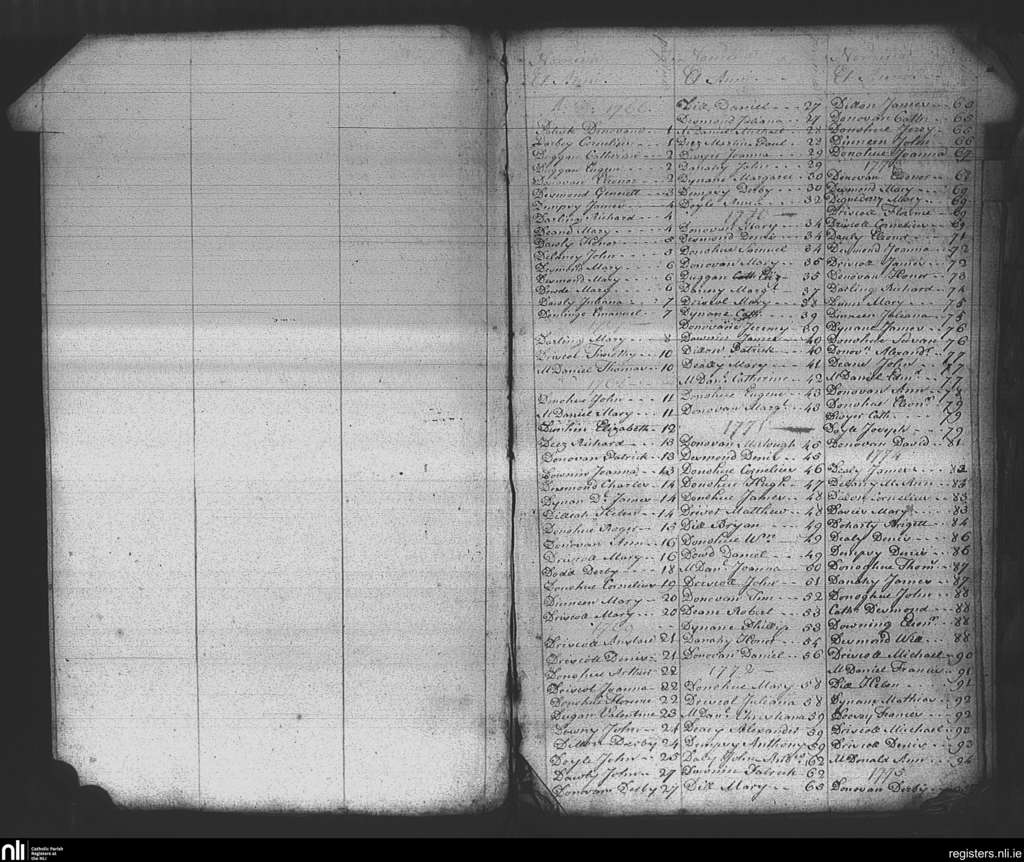 Nomina
Et Anni
1766
Patrick Donovane 1
Darby Cornelius 1
Duggan Catherine 2
Duggan Eugene 2
Donovan Elienor 2
Desmond Gennett 3
Dempsy James 4
Darling Richard 4
Deane Mary 4
Dawly Honor 5
Delaney John 5
Desmond Mary 6
Desmond Mary 6
Dowde Mary 6
Dawly Juliana 7
Emanuel 7
Darling Mary 8
Driscol Timothy 10
McDaniel Thomas 10
Donohue John 11
McDaniel Mary 11
Elizabeth 12
Deez Richard 13
Donovan Patrick 13
Downin Joanna 13
Desmond Charles 14
Dynan Dr. James 14
Helen 14
Donohue Roger 15
Donovan Ann 16
Driscoll Mary 16
Dodd Derby 18
Donohue Cornelius 19
Dinneen Mary 20
Driscoll Mary 20
Driscoll Anstace 21
Driscoll Denis 21
Donohue Arthur 22
Driscol Joanna 22
Donohue Florence 22
Dugan Valentine 23
Downy John 24
Dillon Darby 24
Doyle John 25
Dawly John 27
Donovan Derby 27
Nomina
Et Anni
Dill Daniel 27
Desmond Juliana 27
McDaniel Michael 28
Deez Martin Paul 28
Dwyer Joanna 29
Danahy John 29
Dynane Margaret 30
Dempsy Derby 30
Doyle Ann 32
1770
Donovan Mary 34
Desmond Denis 34
Donohue Samuel 34
Donovan Mary 35
Duggan Cath. Eliz. 35
Danny Margt. 37
Driscol Mary 38
Dynane Cath. 39
Donovane Jeremy 39
Downin James 40
Dillon Patrick 40
Dealy Mary 41
McDanl. Catherine 42
Donohue Eugene 43
Donovan Margt. 43
1771
Donovan Murtough 45
Desmond Denis 45
Donohue Cornelius 46
Donohue Hugh 47
Donohue James 48
Driver Matthew 48
Dill Bryan 49
Donohue Wm. 49
Dowd Daniel 49
McDanl. Joanna 50
Driscoll John 51
Donovan Tim 52
Deane Robert 53
Dynane Philip 53
Danahy Honor 54
Donovan Daniel 56
1772
Donohue Mary 58
Driscol Juliana 58
McDanl. Christiana 59
Deacy Alexander 59
Dempsy Anthony 59
Daly John Anty. 62
Patrick 62
Dill Mary 63
Nomina
Et Anni
Dillon James 65
Donovan Cathr. 65
Donohue Jerry 66
Dinneen John 66
Donohue Joanna 67
1773
Donovan Elenor 67
Desmond Mary 69
Mary 69
Driscoll Florence 69
Driscoll Cornelius 69
Dauly Elenor 71
Desmond Joanna 72
Driscoll James 72
Donovan Honor 73
Darling Richard 74
Mary 75
Dinneen Juliana 75
Dynane James 76
Donohue Susan 76
Donovn. Alexandr. 77
Deane John 77
McDaniel Edmd. 77
Donovan Ann 78
Donohue Elionr. 79
Dwyer Cath. 79
Doyle Joseph 79
Donovan David 81
1774
Dealy James 82
Delany M. Ann 83
Dillon Cornelius 83
Davis Mary 83
Doharty Brigett 84
Dealy Denis 86
Dempsy Denis 86
Donoghue Thoms. 87
Danahy James 87
Donoghue John 88
Cathr. Desmond 88
Downing Elionr. 88
Desmond Will. 88
Driscoll Michael 90
McDaniel Francis 91
Dill Helen 91
Dynane Mathias 92
Francis 92
Driscoll Michael 90
Driscoll Denis 93
McDonald Ann 94
1775
Donovan Derby
nli
Catholic Parish
Registers at
the NLI
registers.nli.ie